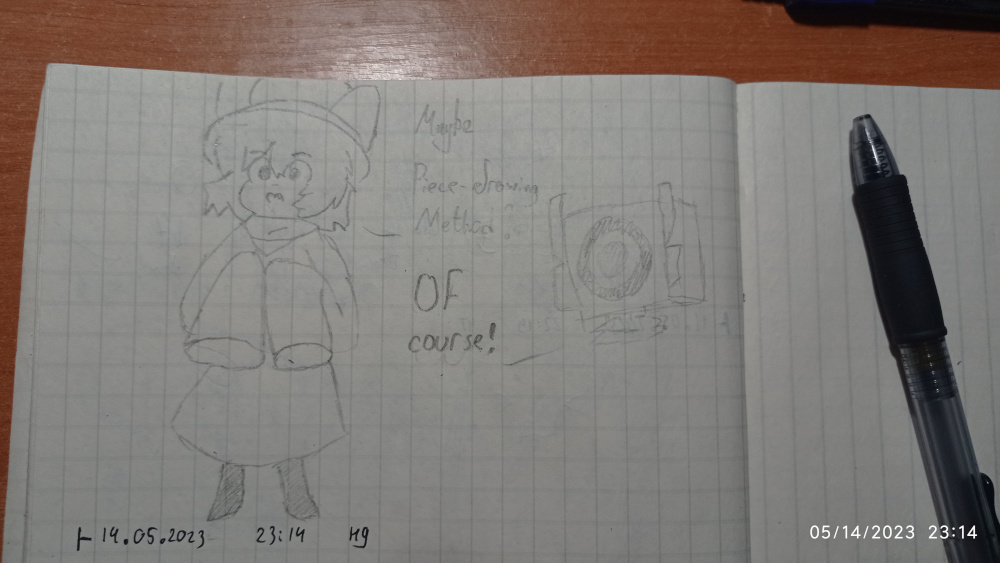 Maybe
Piece-drawing
Method.
OF
course!
14.05.2023 23:14 Hg
05/14/2023 23:14